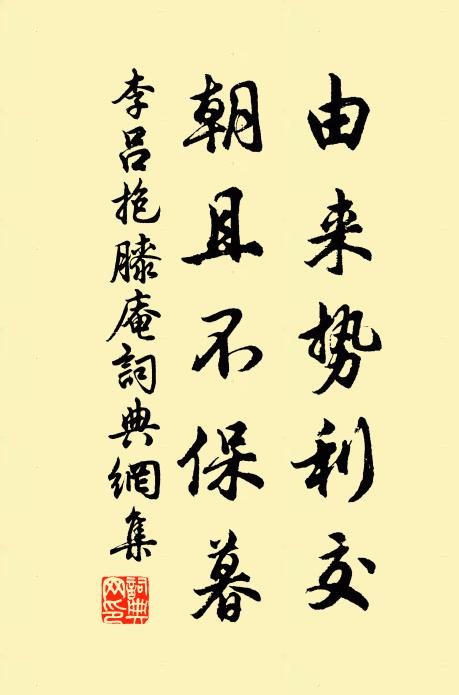 由来势利交
朝且不保暮
李吕抱膝庵詞典網集
詞典网印